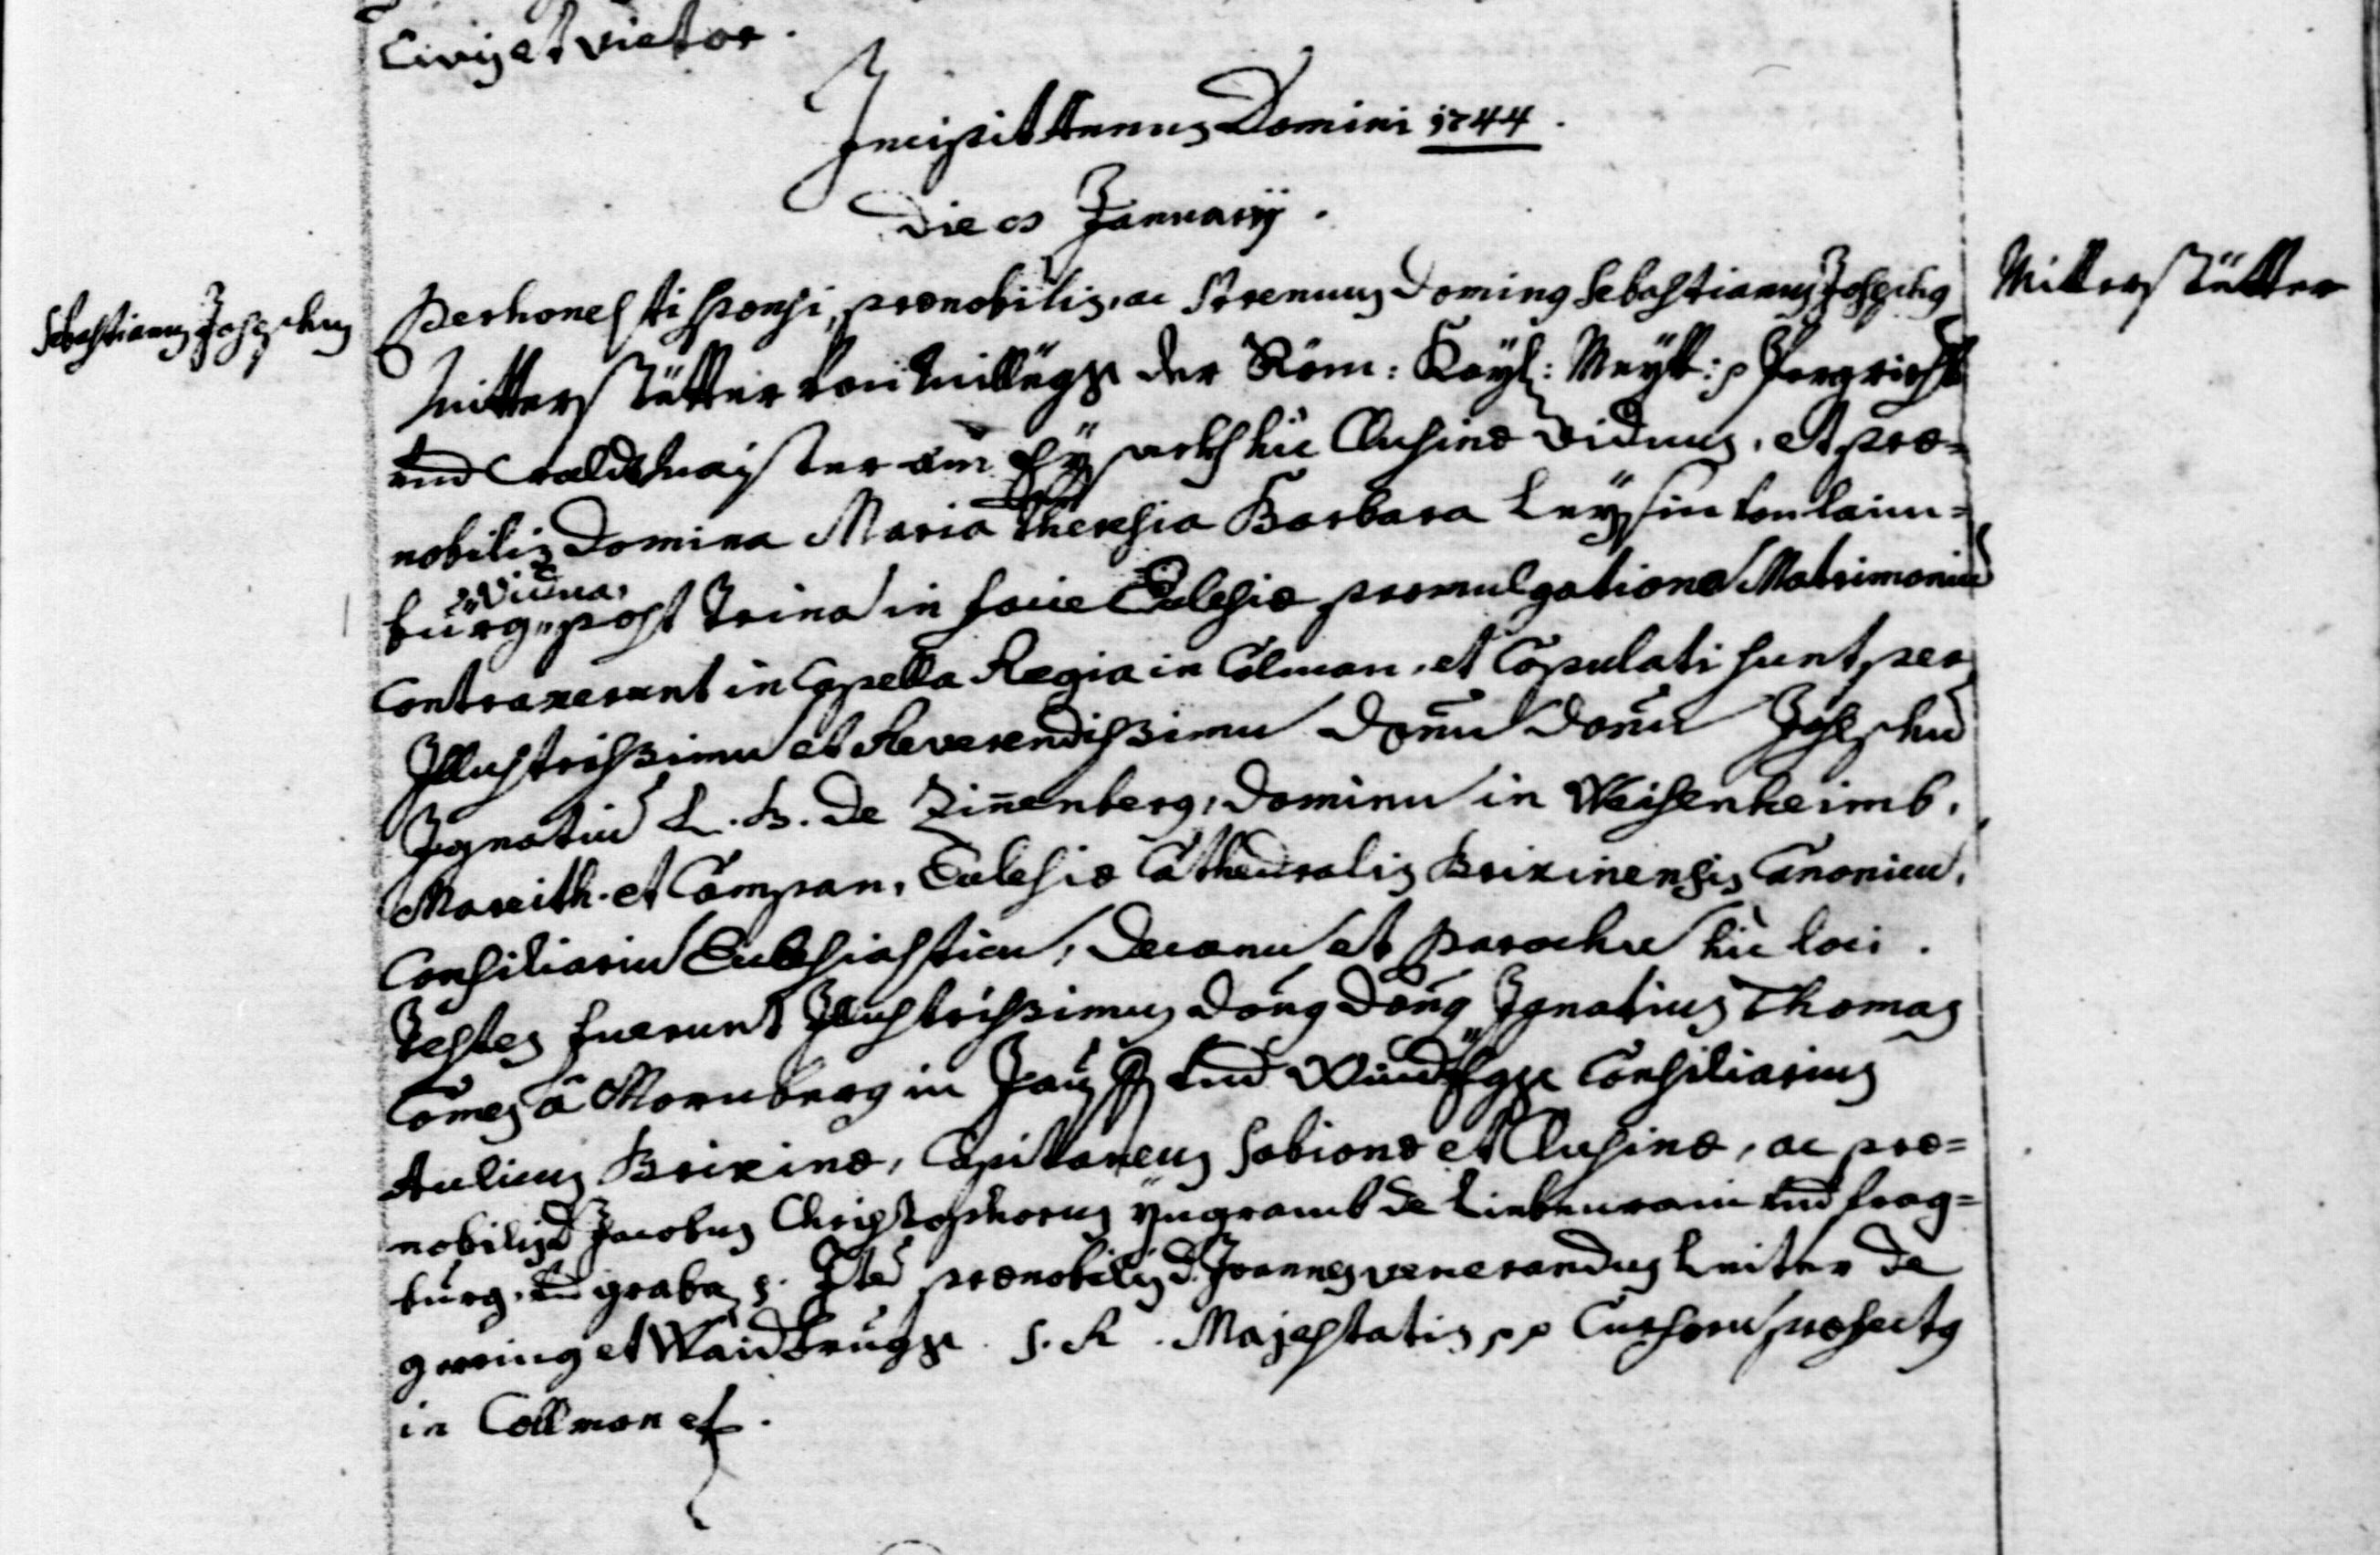 Civis et vietor.
Incipit Annus Domini 1744.
Die 8 January.
Sebastianus Josephus
Perhonesti sponsi, prænobilis, ac strenuus Dominus Sebastianus Josephus
Mitterstätter
Mitterstätter von Millëgg der Röm: Kayl: Mayt: p Pergricht
und Waldtmaister am Eysackh hic Clusinæ viduus, et præ=
nobilis Domina Maria Theresia Barbara Leysin von Laim=
vidua,
burg, post trina in facie Eclesiæ promulgatione Matrimoniu
Contraxerunt in Capella Regia in Colman, et Copulati sunt per
Illustrissimu et Reverendissimu Donu Donu Josephu
Ignatiu L. B. de Zinenberg, Dominu in Weisenheimb,
Mareith et Campan, Eclesiæ Cathedralis Brixinensis Canonicu,
Consiliariu Eclesiasticu, Decanu et Parochu hic loci.
Testes fuerunt Illustrissimus Dong Dong Ignatius Thomas
Comes à Thornberg in und Consiliarius
Aulicus Brixinæ, Capitaneus Sabionæ et Clusinæ, ac præ=
nobilis D Jacobus Christophorus Yngramb de Liebenrain und frag=
burg, und graba, Ite prænobilis D. Joannes venerandus de
gerring et Waidbrugg S. R. Majestatis pp Cursoru præfectg
in Collman et.